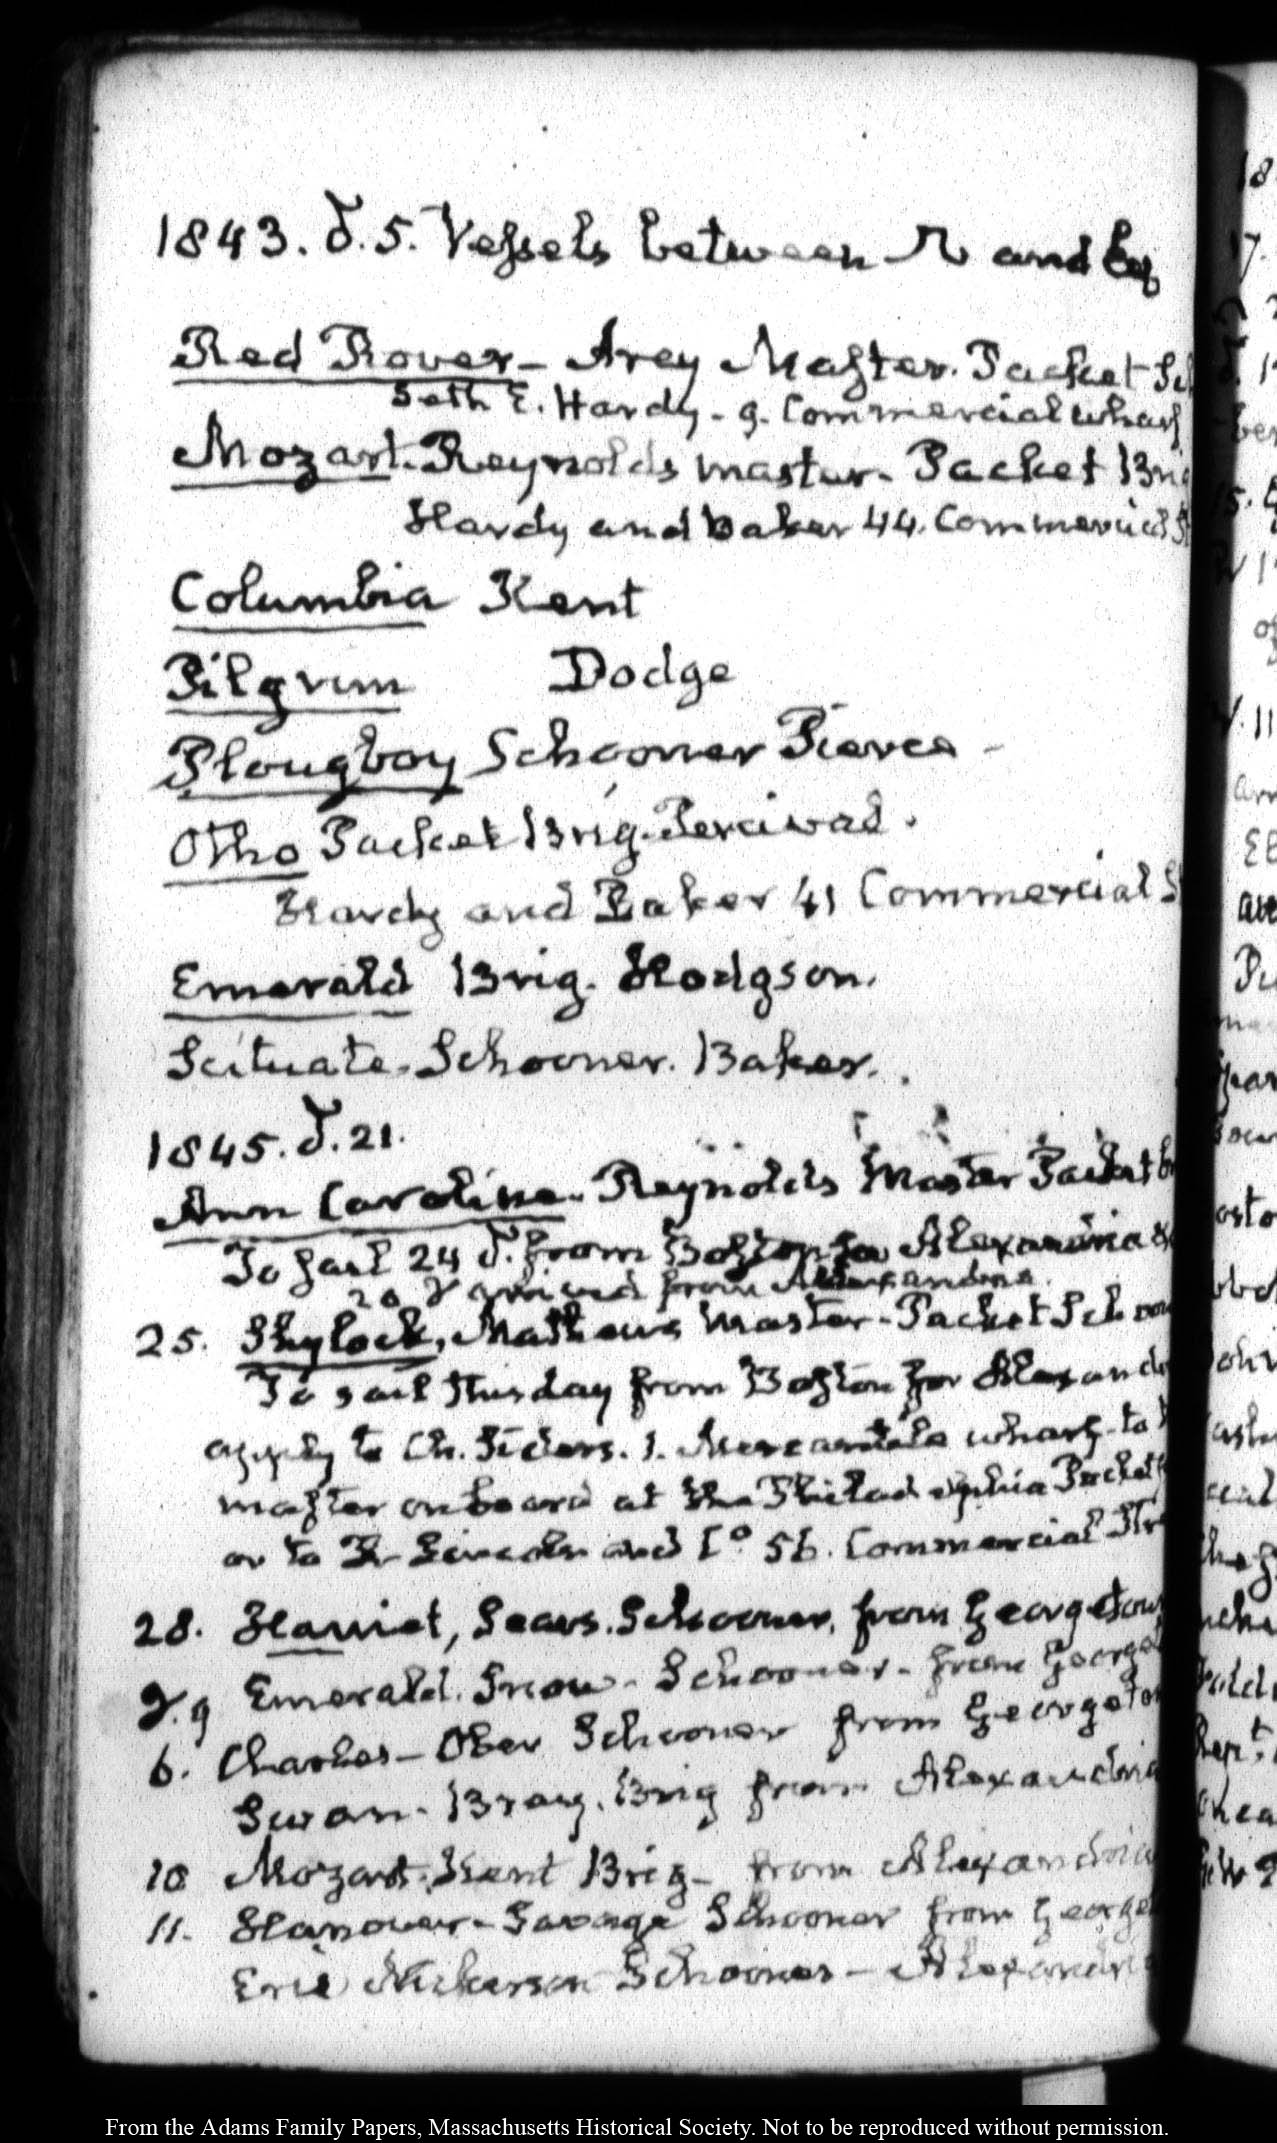 1843. 5. Vessels between and
Red Rover – Arey Master. Packet
Seth E. Hardy – 9. Commercial wharf
Mozart. Reynolds master – Packet Brig
Hardy and Baker 44. Commercial
Columbia Kent
Pilgrim Dodge
Plougboy Schooner Pierce –
Otho Packet Brig. Percival.
Hardy and Baker 41 Commercial
Emerald Brig. Hodgson.
Scituate. Schooner. Baker.
1845. 21.
Ann Caroline. Reynolds Master Packet
To sail 24 from Boston for Alexandria
20 arrived from Alexandria.
25. Shylock, Mathews Master – Packet
To sail this day from Boston for
apply to Ch. 1. Mercantile wharf – to
master on board at the Philadelphia Packet
or to and Co 56. Commercial
28. Harriet, Sears. Schooner, from Georgetown
9 Emerald. Snow – Schooner – from
6. Charles – Ober Schooner from
Swan – Bray. Brig from Alexandria
10 Mozart. Kent Brig – from Alexandria
11. Hanover – Savage Schooner from
Erie Nickerson Schooner – Alexandria
From the Adams Family Papers, Massachusetts Historical Society. Not to be reproduced without permission.